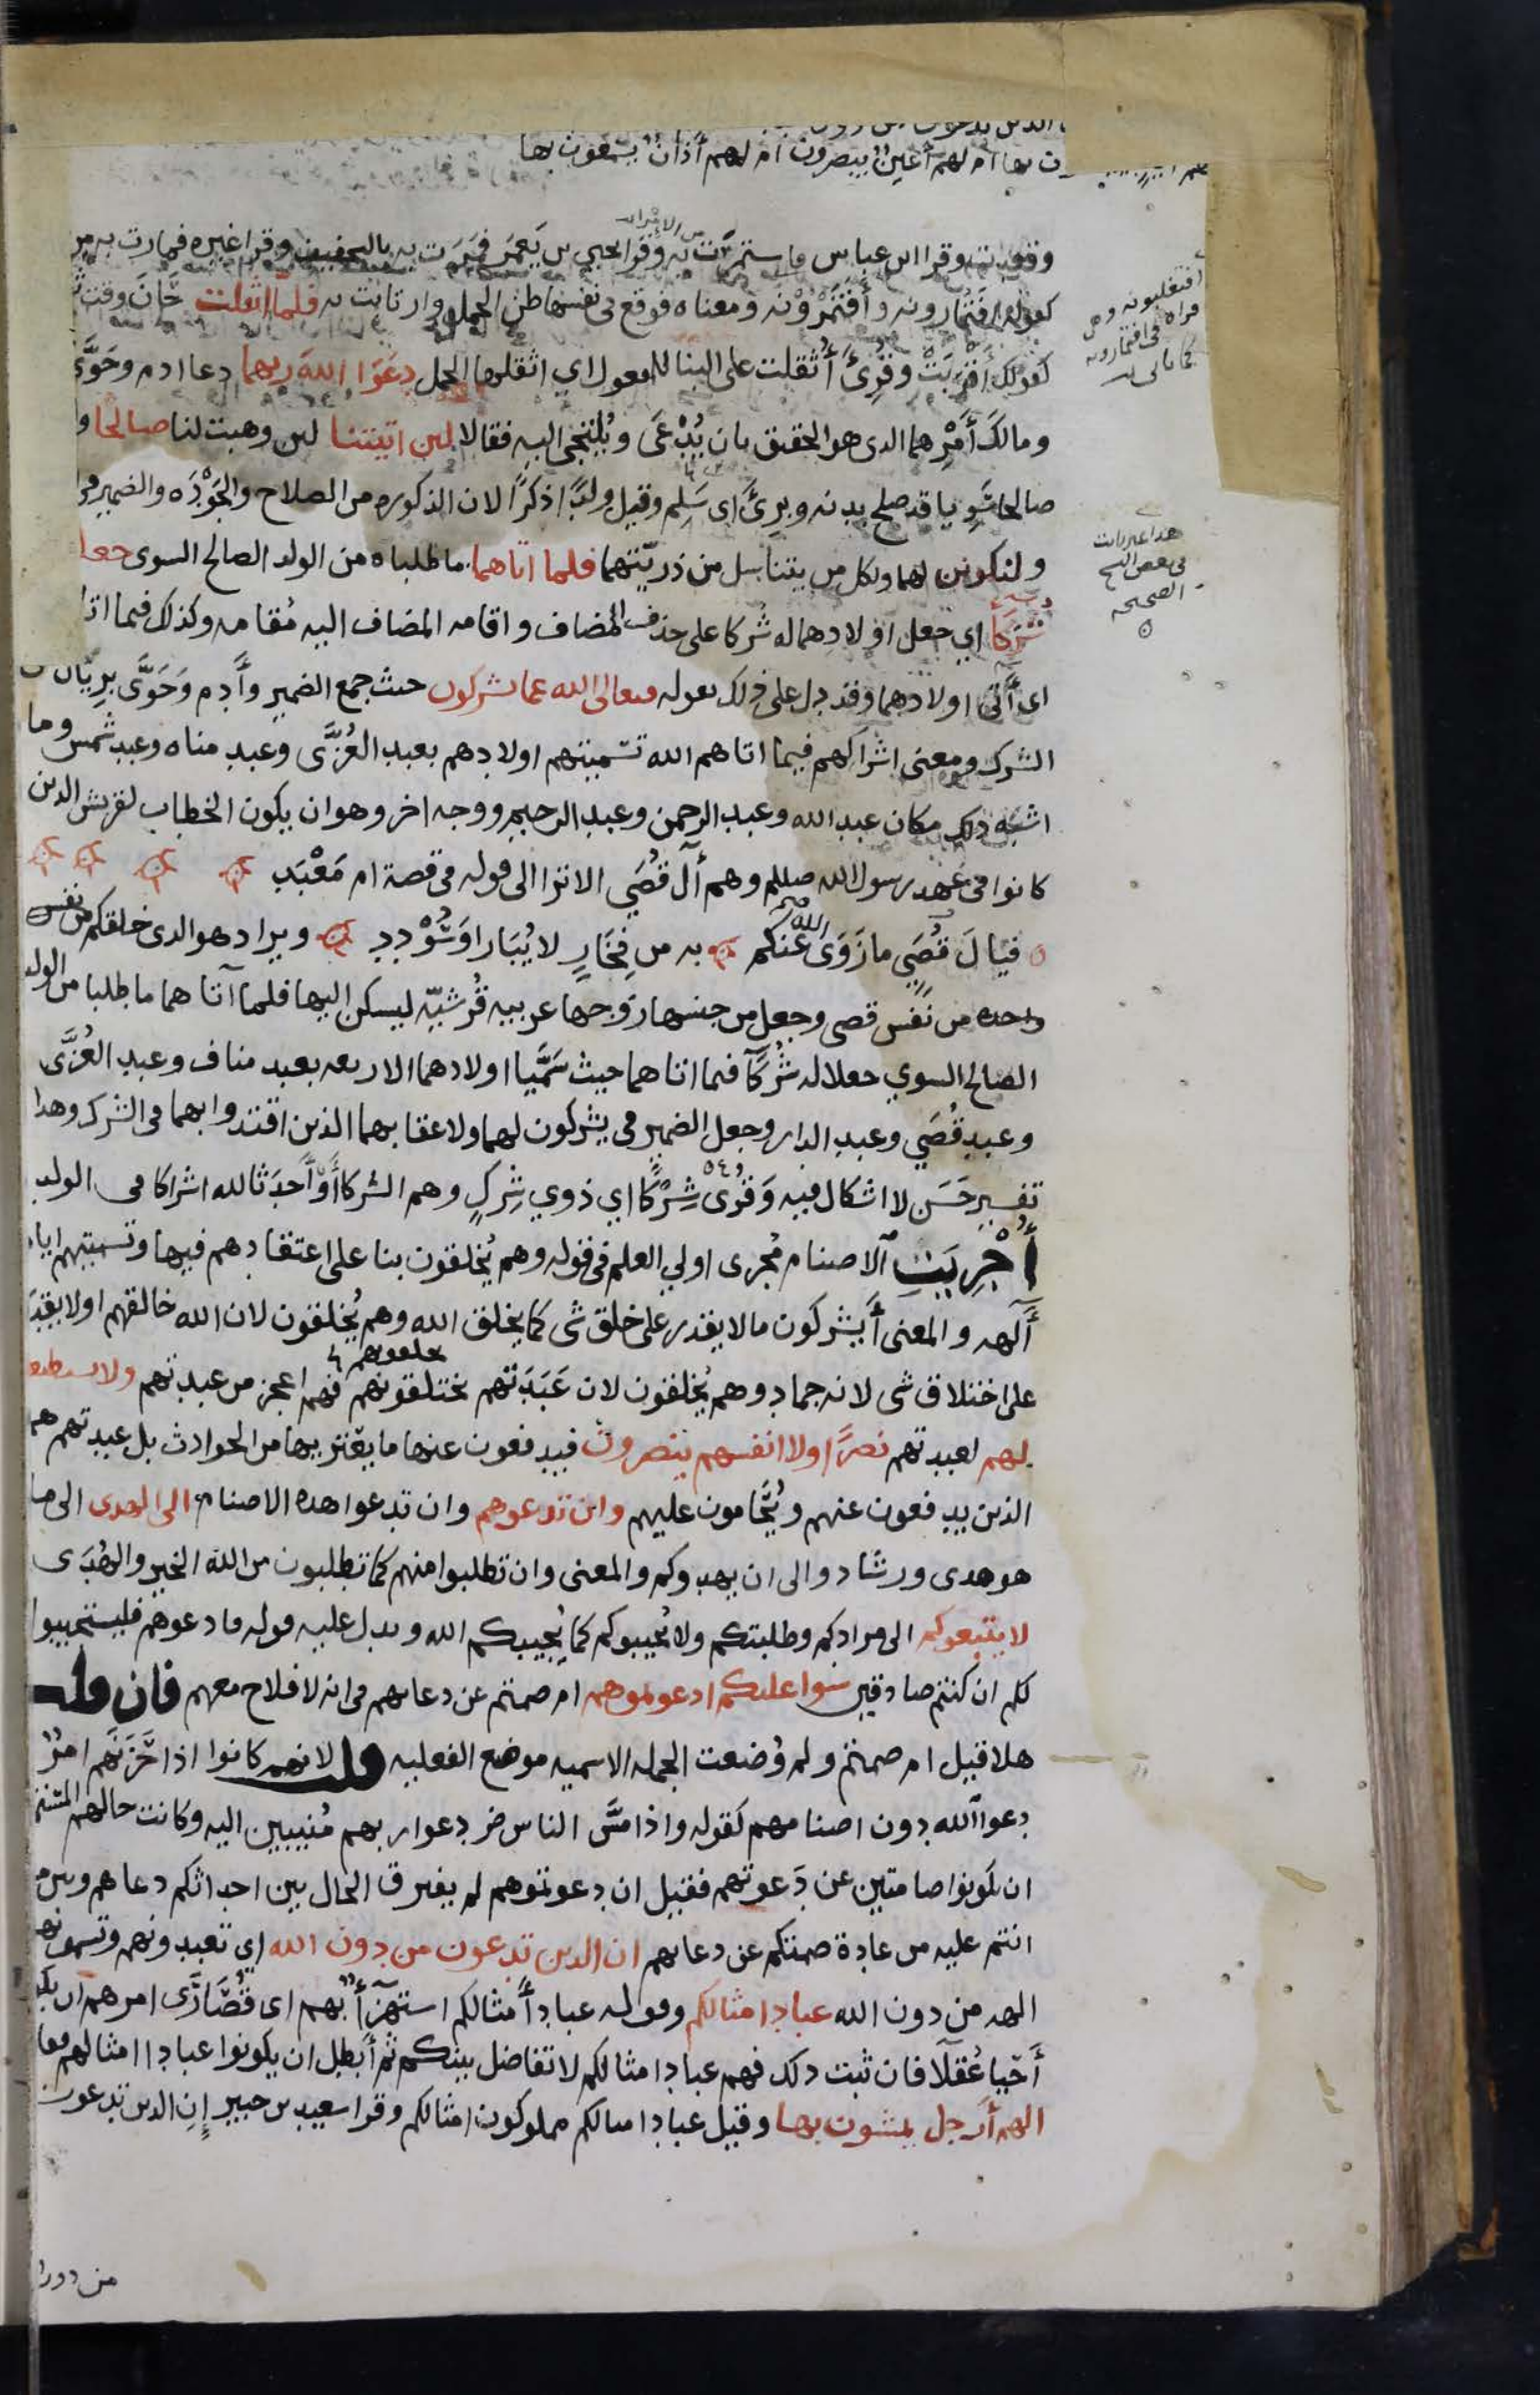 الذين يدعون من دون
ون بها ام لهم أعينٌ يبصرون ام لهم أذانٌ يسمعون بها
وقعدت وقرا ابن عباس فاستمرّت به وقرا يحيى بن يَعمَر فمَرَت به بالتخفيف وقرا غيره فمارت به من
كقوله أفتمارونه وأفتَمْرُوْنه ومعناه فوقع في نفسها ظن الحمل وارتابت به فلما اثقلت حَانَ وقت
كقولك أقرَبَتْ وقُرِئَ أُثقلت على البنا للمفعول اي اثقلها الحمل دعَوَا اللهَ ربهما دعا ادم وحَوَّى
ومالكَ أمْرِهما الدى هو الحقيق بان يُدْعَى ويُلتجى اليه فقالا لين اتيتنا لين وهبت لنا صالحا و
صالحا سَوِيا قد صلح بدنه وبرِئَ اى سَلِم وقيل ولدًا ذكرًا لان الذكوره من الصلاح والجَوْدَه والضمير في
ولنكونن لهما ولكل من يتناسل من ذريّتهما فلما اتاهما ما طلباه من الولد الصالح السوى جعلا
شركا اي جعل اولادهما له شُركا على حذف المضاف واقامه المضاف اليه مُقامه وكذلك فيما اتا
اى أتى اولادهما وقد دل على ذلك بقوله فتعالى الله عما يشركون حيث جمع الضمير وأدم وَحَوَّى بريان
الشرك ومعنى اشراكهم فيما اتاهم الله تسْميتهم اولادهم بعبد العُزَّى وعبد مناه وعبد شمس وما
اشبه ذلك مكان عبد الله وعبد الرحمن وعبد الرحيم ووجه اخر وهو ان يكون الخطاب لقريش الذين
كانوا فى عَهد رسول الله صللم وهم أَل قُصَي الا ترا الى قوله في قصة ام مَعْبَد
فيالَ قُصَي ما زَوَى الله عَنكم به من فِخَارٍ لا يُبَارا وَسُوْدد ويراد هو الدى خلقكم من نفس
واحده من نَفس قصى وجعل من جنسها زوجها عربيه قُرشيّه ليسكن اليها فلما آتاهما ما طلبا من الولد
الصالح السوي جعلا له شُركآ فيما اتاهما حيث سَمَّيا اولادهما الاربعه بعبد مناف وعبد العُزَّى
وعبد قُصَي وعبد الدار وجعل الضمير في يشركون لهما ولاعقابهما الذين اقتدوا بهما في الشرك وهدا
تفسير حَسَن لا اشكال فيه وَقُرى شِرْكًا اي ذوي شِركٍ وهم الشركا أَوْ أَحدَثا لله اشراكا في الولد
أُجْرِيَتِ الاصنام مُجرى اولي العلم في قوله وهم يُخلقون بنا على اعتقادهم فيها وتسميتهم اياها
أَلهه والمعنى أَيشركون ما لا يقدر على خلق شى كما يخلق الله وهم يُخلقون لان الله خالقهم او لا يقدَ
على اختلاق شى لانه جماد وهم يُخلقون لان عَبَدَتهم يختلقونهم فهم اعجز من عبدتهم ولا يستطيعو
لهم لعبدتهم نصرًا ولا انفسهم ينصرون فيدفعون عنها ما يعْتريها من الحوادث بل عبدتهم هم
الذين يدفعون عنهم ويُحَامون عليهم وان تدعوهم وان تدعوا هده الاصنام الى الهدى الى ما
هو هدى ورشاد والى ان يهدوكم والمعنى وان تطلبوا منهم كما تطلبون من الله الخير والهُدَى
لا يتبعوكم الى مرادكم وطلبتكم ولا يُجيبوكم كما يُجيبكم الله ويدل عليه قوله فادعوهم فليستجيبوا
لكم ان كنتم صادقين سوا عليكم ادعوتموهم ام صمتم عن دعايهم في انه لا فلاح معهم فان قلت
هلا قيل ام صمتم ولم وُضعت الجمله الاسميه موضع الفعليه قلت لانهم كانوا اذا حَزَبَهم امرٌ
دعوا الله دون اصنامهم كقوله واذا مسَّ الناس ضر دعوا ربهم مُنيبين اليه وكانت حالهم المستمر
ان يكونوا صامتين عن دَعوتهم فقيل ان دعوتموهم لم يفترق الحال بين احداثكم دعاهم وبين ما
انتم عليه من عادة صمتكم عن دعايهم ان الدين تدعون من دون الله اي تعبدونهم وتسمونهم
الهه من دون الله عباد امثالكم وقوله عباد أَمثالكم استهزأ بهم اى قُصَارَى امرهم ان يكو
أَحْيا عُقلآ فان ثبت دلك فهم عباد امثالكم لا تفاضل بينكم ثم أبطل ان يكونوا عبادا امثالهم فقا
الهم أرجل يمشون بها وقيل عباد امثالكم مملوكون امثالكم وقرا سعيد بن جبير إِنِ الدين تدعون
هدا غير ثابت
في بعض النسخ
الصحيحه
من دون